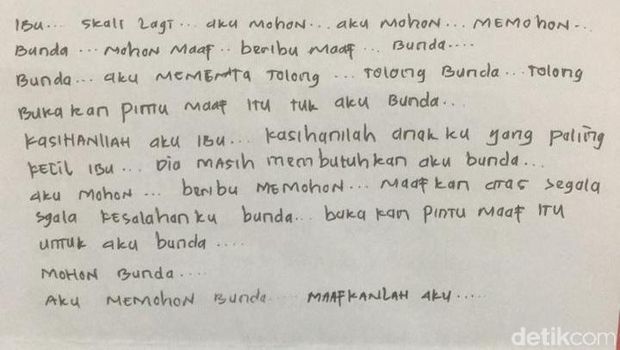 IBu... skali lagi... aku mohon... aku mohon... MEMohon...
Bunda... Mohon Maaf.. beribu maaf... Bunda....
Bunda... aku MEMENTA tolong... tolong Bunda... Tolong
Buka kan pintu maaf itu tuk aku Bunda...
KASIHANILAH aku IBU... kasihanilah anak ku yang paling
kecil IBU... Dia masih membutuhkan aku bunda...
aku mohon... beribu MEMOHON... Maaf kan atas segala
sgala kesalahan ku bunda... buka kan pintu Maaf ITU
untuk aku bunda....
MOHON Bunda....
AKU MEMOHON Bunda.... MAAFKANLAH AKU.....
detikcom